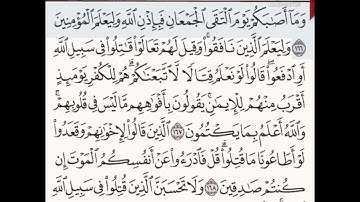 وَمَآ أَصَٰبَكُمْ يَوْمَ ٱلْتَقَى ٱلْجَمْعَانِ فَبِإِذْنِ ٱللَّهِ وَلِيَعْلَمَ ٱلْمُؤْمِنِينَ
١٦٦ وَلِيَعْلَمَ ٱلَّذِينَ نَافَقُوا۟ ۚ وَقِيلَ لَهُمْ تَعَالَوْا۟ قَٰتِلُوا۟ فِى سَبِيلِ ٱللَّهِ
أَوِ ٱدْفَعُوا۟ ۖ قَالُوا۟ لَوْ نَعْلَمُ قِتَالًا لَّٱتَّبَعْنَٰكُمْ ۗ هُمْ لِلْكُفْرِ يَوْمَئِذٍ
أَقْرَبُ مِنْهُمْ لِلْإِيمَٰنِ ۚ يَقُولُونَ بِأَفْوَٰهِهِم مَّا لَيْسَ فِى قُلُوبِهِمْ ۗ
وَٱللَّهُ أَعْلَمُ بِمَا يَكْتُمُونَ ١٦٧ ٱلَّذِينَ قَالُوا۟ لِإِخْوَٰنِهِمْ وَقَعَدُوا۟
لَوْ أَطَاعُونَا مَا قُتِلُوا۟ ۗ قُلْ فَٱدْرَءُوا۟ عَنْ أَنفُسِكُمُ ٱلْمَوْتَ إِن
كُنتُمْ صَٰدِقِينَ ١٦٨ وَلَا تَحْسَبَنَّ ٱلَّذِينَ قُتِلُوا۟ فِى سَبِيلِ ٱللَّهِ